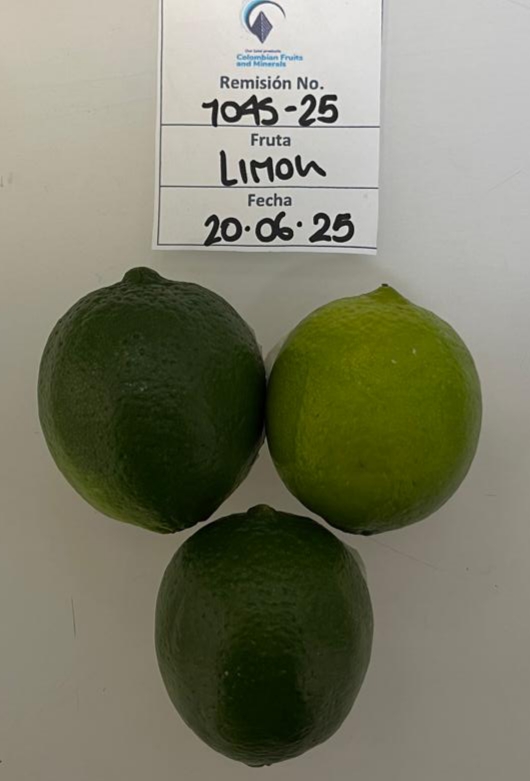 Our best products
Colombian Fruits
and Minerals
Remisión No.
1045-25
Fruta
LIMON
Fecha
20·06·25